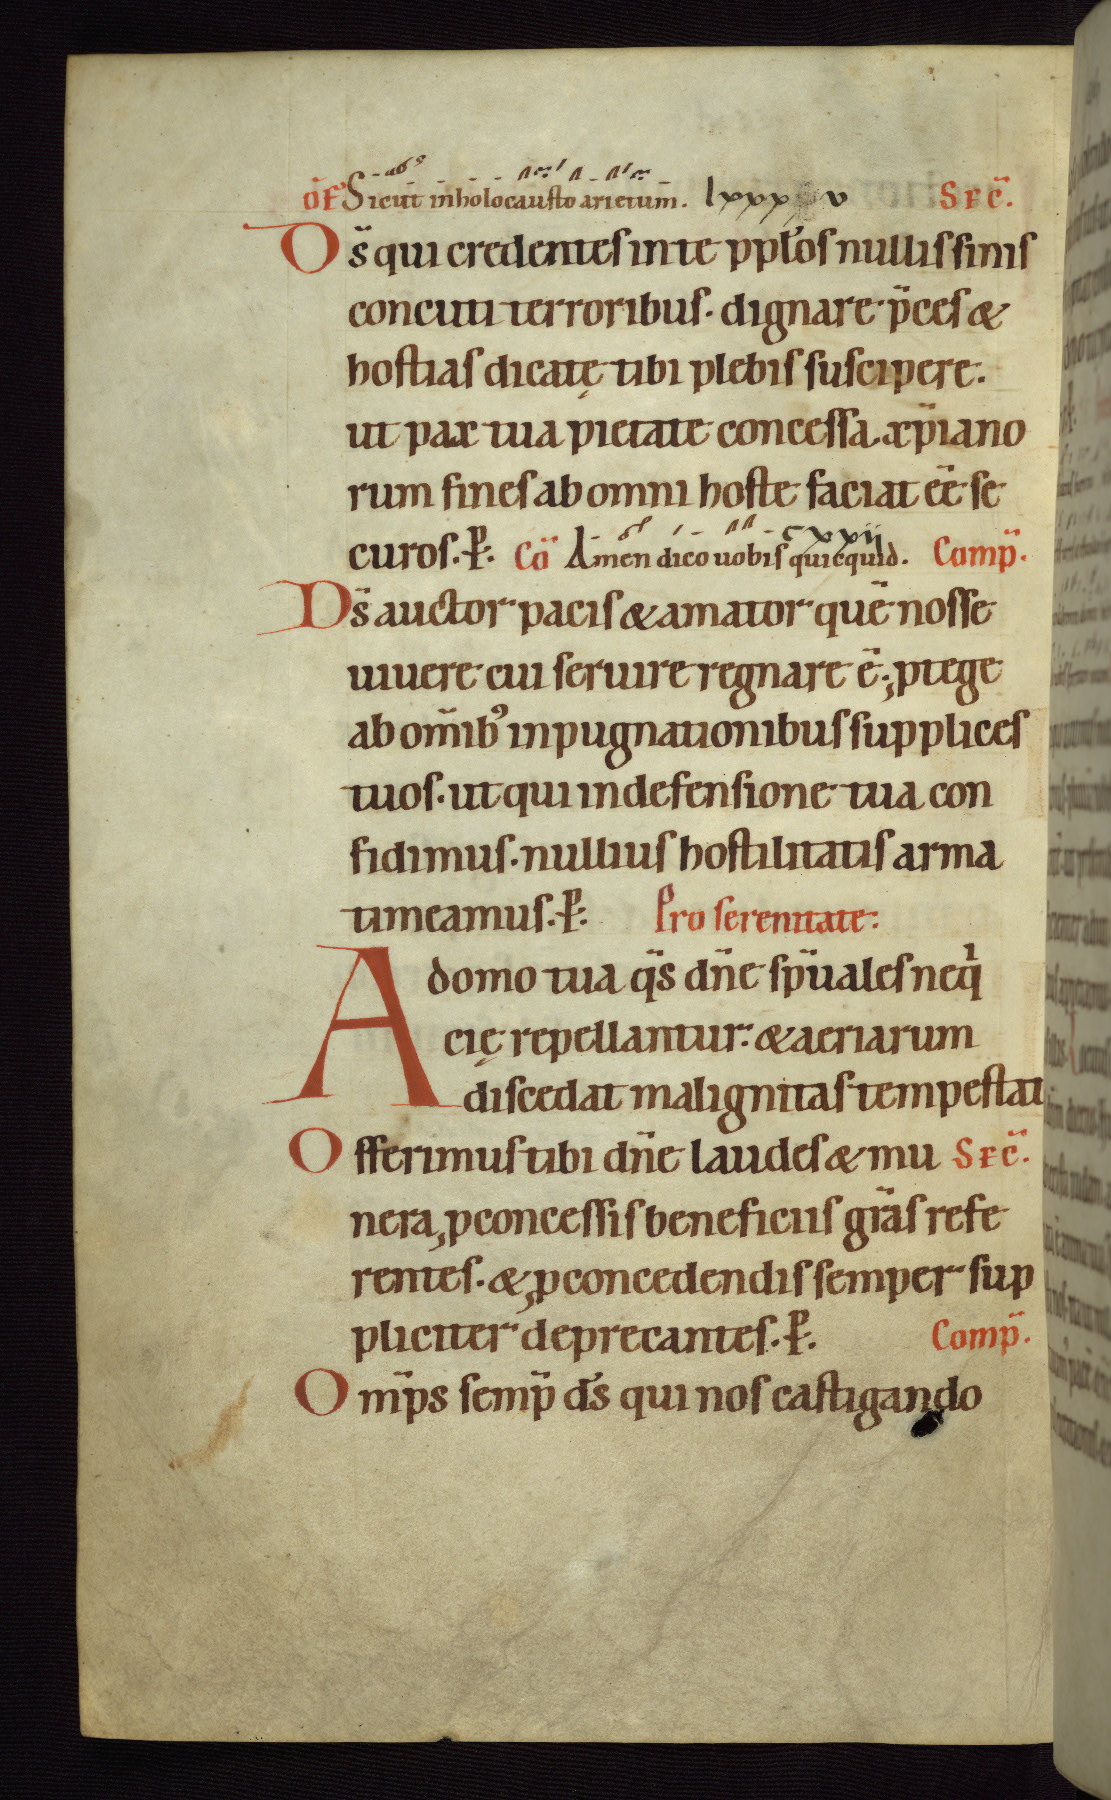 OF Sicut in holocausto arietum. lxxxv SEC̄.
D s̄ qui credentes in te pp̄los nullis sinis
concuti terroribus. dignare p̄ces &
hostias dicatę tibi plebis suscipere.
ut pax tua pietate concessa. xp̄iano
rum fines ab omni hoste faciat eē se
curos. P. Cō Amen dico uobis quicquid. cxxii Comp̄.
D s̄ auctor pacis & amator quē nosse
uiuere cui seruire regnare ē; ptege
ab om̄ib' inpugnationibus supplices
tuos. ut qui in defensione tua con
fidimus. nullius hostilitatis arma
timeamus. P. Pro serenitate:
A domo tua q̄s dn̄e sp̄uales neq
cię repellantur: & aeriarum
discedat malignitas tempestat
O fferimus tibi dn̄e laudes & mu SEC̄.
nera, pconcessis beneficiis gr̄as refe
rentes. & pconcedendis semper sup
pliciter deprecantes. P. Comp̄.
O mp̄s semp̄ ds̄ qui nos castigando